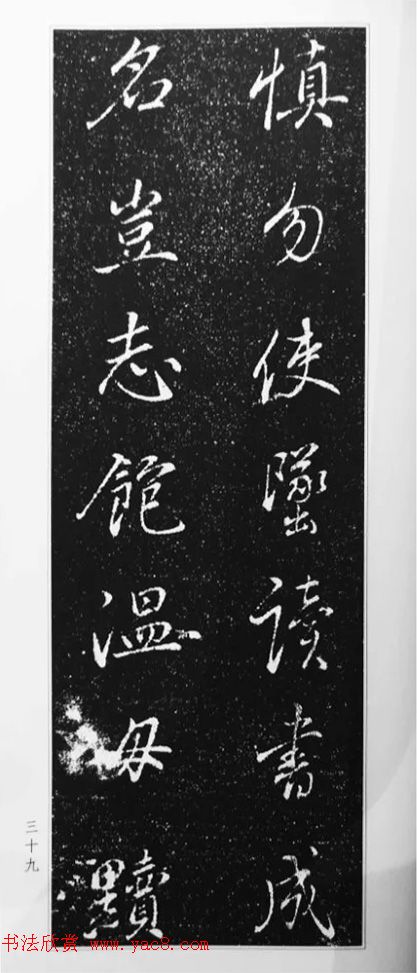 慎勿使墜讀書成
名豈志飽溫毋黷
三十九
书法欣赏 www.yac8.com